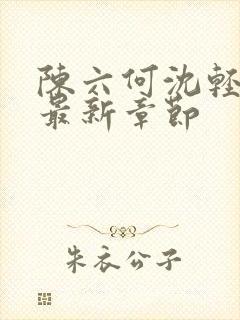 陳六何沈輕
最新章節
朱衣公子